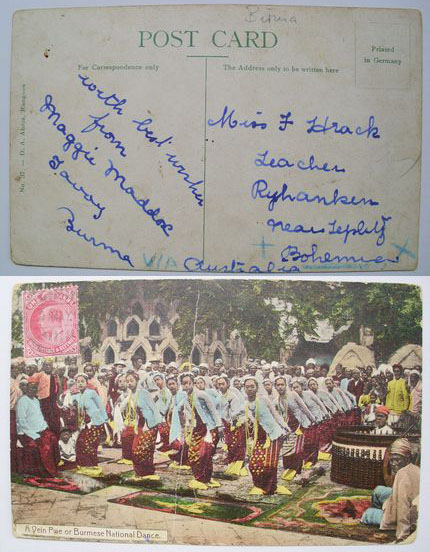 Birma
POST CARD
Printed
in Germany
For Correspondence only
The Address only to be written here
No. 37 — D. A. Ahuja, Rangoon
with best wishes
from
Maggie Maddox
Tavoy
Burma
Miss F Hrack
Teacher
Ryhanken
near Teplitz
Bohemia
VIA Australia
A Yein Pwe or Burmese National Dance.